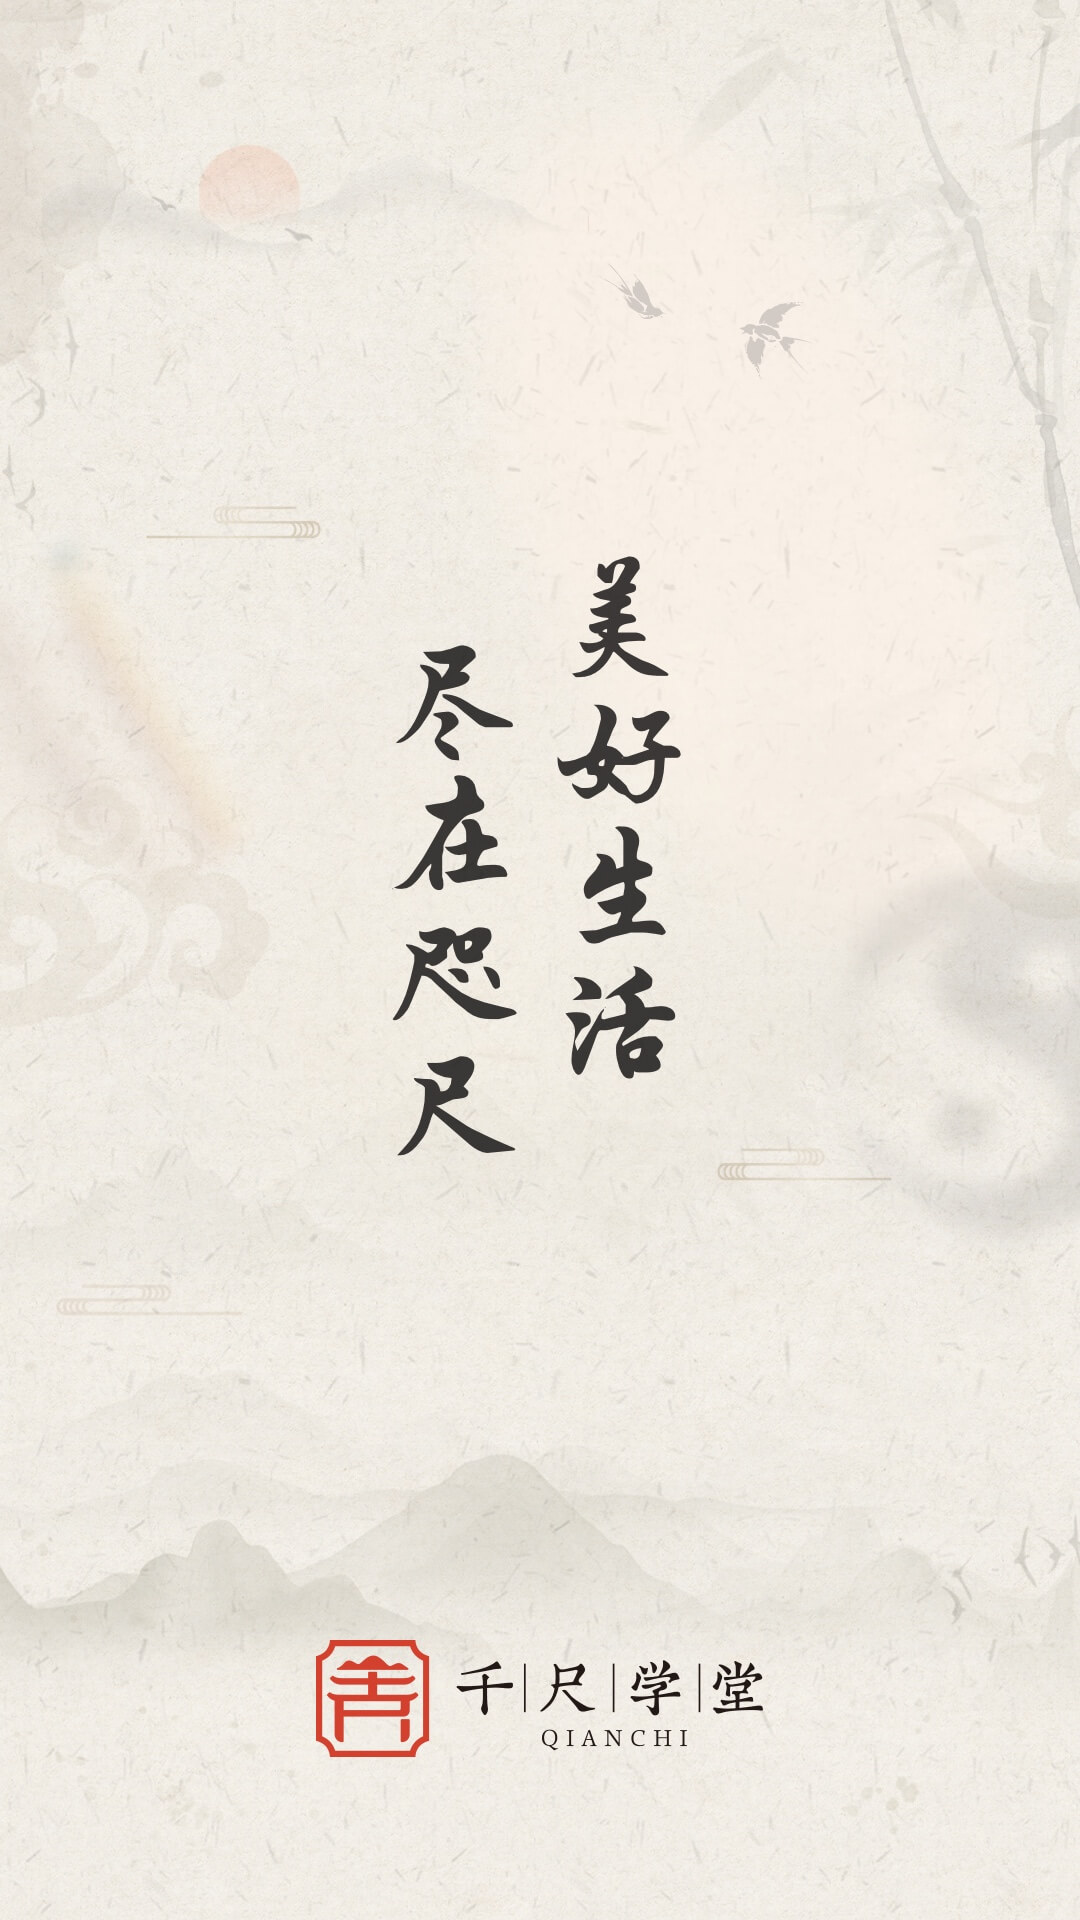 美好生活
尽在咫尺
千尺学堂
QIANCHI